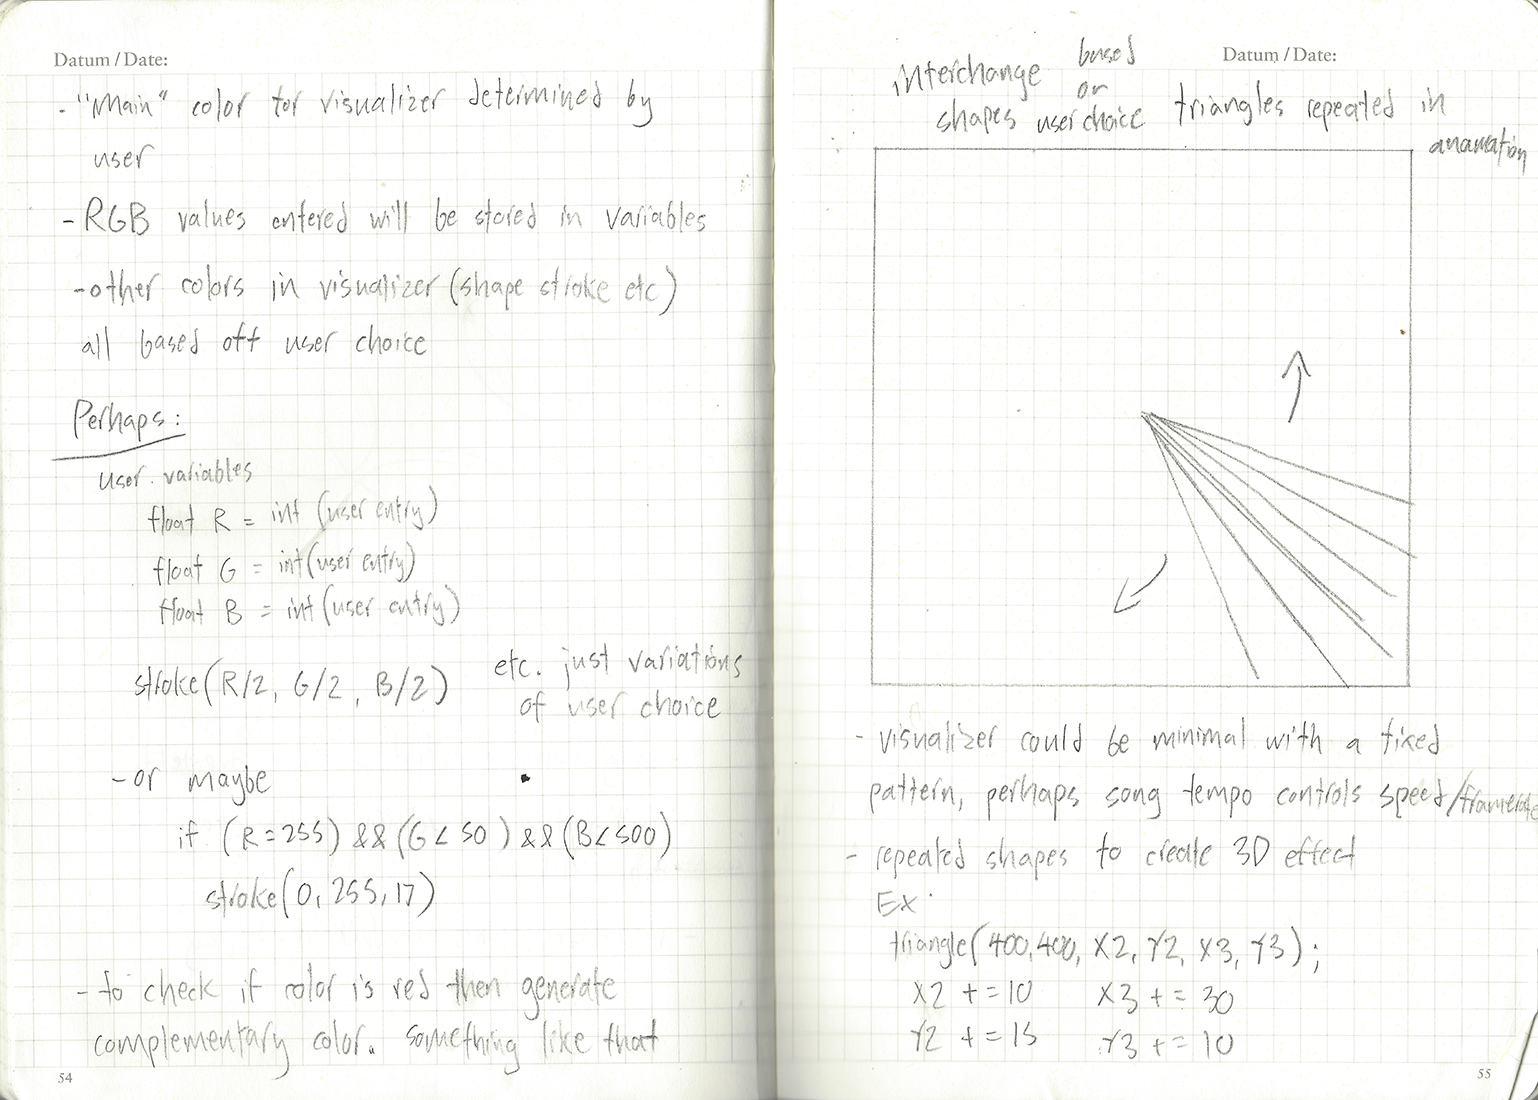 Datum / Date:
- "Main" color for visualizer determined by
user
- RGB values entered will be stored in variables
- other colors in visualizer (shape stroke etc)
all based off user choice
Perhaps:
user variables
float R = int (user entry)
float G = int (user entry)
float B = int (user entry)
stroke(R/2, G/2, B/2)
etc. just variations
of user choice
- or maybe
if (R=255) && (G<50) && (B<500)
stroke(0, 255, 17)
- to check if color is red then generate
complementary color. something like that
54
Datum / Date:
interchange
shapes
based
on
user choice
triangles repeated in
anamation
- visualizer could be minimal with a fixed
pattern, perhaps song tempo controls speed/framerate
- repeated shapes to create 3D effect
Ex:
triangle(400,400, X2, Y2, X3, Y3);
X2 += 10 X3 += 30
Y2 += 15 Y3 += 10
55